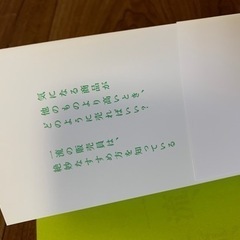 気になる商品が
他のものより高いとき、
どのように売ればいい？
一流の販売員は、
絶妙なすすめ方を知っている